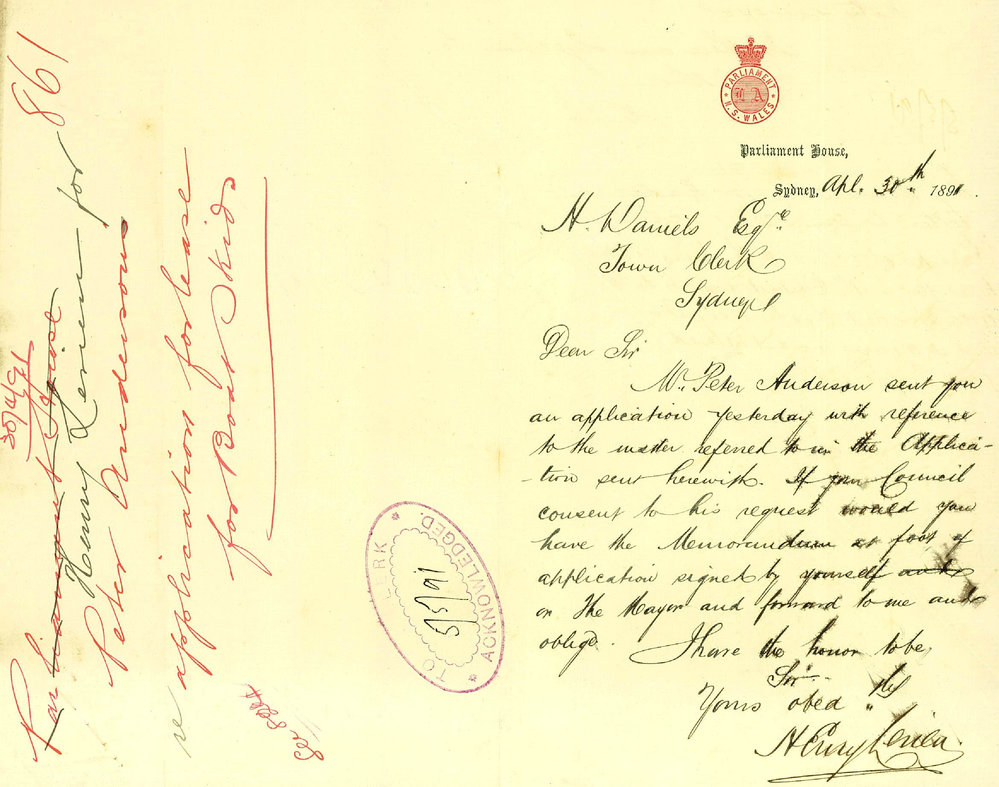 PARLIAMENT
L A
N. S. WALES
Parliament House,
Sydney, Apl. 30th 1891.
H. Daniels Esqre
Town Clerk
Sydney
Dear Sir
Mr. Peter Anderson sent you
an application yesterday with reference
to the matter referred to in the Applica-
-tion sent herewith. If your Council
consent to his request would you
have the Memorandum at foot of
application signed by yourself
or The Mayor and forward to me and
oblige. I have the honor to be,
Sir
Yours obed
Henry Levien.
861
30/4/91
Parliament House
Henry Levien for
Peter Anderson
re application for lease
for Boat Skids
TO CLERK
5/5/91
ACKNOWLEDGED.